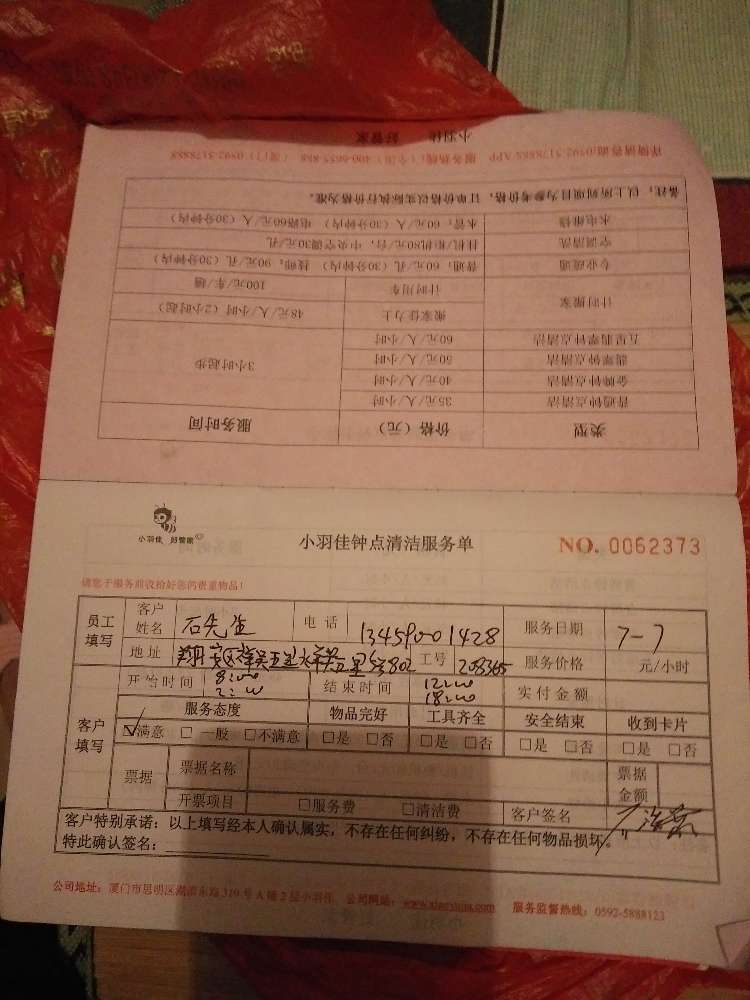 详情请咨询:0592-5178885 APP 服务热线:(全国)400-6655-888 (厦门)0592-5178888
小羽佳 好管家
类型 价格(元) 服务时间
普通钟点清洁 35元/人/小时 3小时起步
金牌钟点清洁 40元/人/小时
翡翠钟点清洁 50元/人/小时
五星翡翠钟点清洁 60元/人/小时
计时搬家 搬家佳力士 48元/人/小时(2小时起)
计时用车 100元/车/趟
专业疏通 普通:60元/孔(30分钟内) 技师:90元/孔(30分钟内)
空调清洗 挂机/柜机80元/台,中央空调30元/孔
水电维修 水管:60元/人(30分钟内) 电路60元/人(30分钟内)
备注:以上所列项目为参考价格,订单价格以实际执行价格为准。
小羽佳 好管家
小羽佳钟点清洁服务单 NO. 0062373
请您于服务前收拾好您的贵重物品!
员工填写 客户姓名 石先生 电话 13459001428 服务日期 7-7
地址 翔安区 802 工号 208365 服务价格 元/小时
开始时间 8:00 2:00 结束时间 12:00 18:00 实付金额
客户填写 服务态度 物品完好 工具齐全 安全结束 收到卡片
☑满意 □一般 □不满意 □是 □否 □是 □否 □是 □否 □是 □否
票据 票据名称 票据金额
开票项目 □服务费 □清洁费 客户签名
客户特别承诺:以上填写经本人确认属实,不存在任何纠纷,不存在任何物品损坏。
特此确认签名:
公司地址:厦门市思明区湖滨东路319号A幢2层小羽佳 公司网站: 服务监督热线:0592-5888123